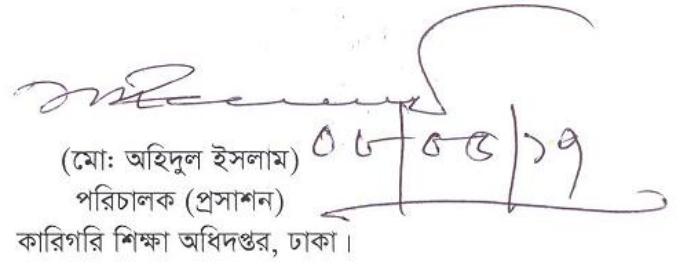 ০৮/০৫/১৭
(মো: অহিদুল ইসলাম)
পরিচালক (প্রসাশন)
কারিগরি শিক্ষা অধিদপ্তর, ঢাকা।